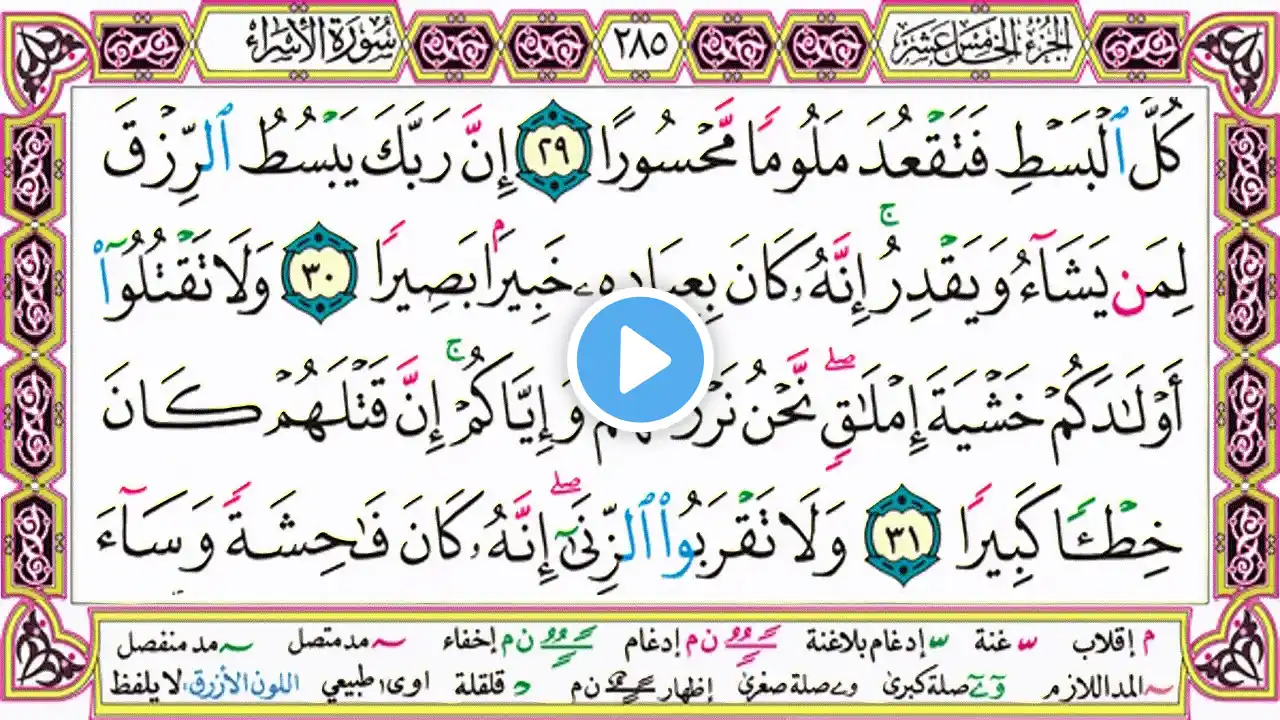 الجزء الخامس عشر ٢٨٥ سورة الأسراء
كُلَّ ٱلْبَسْطِ فَتَقْعُدَ مَلُومًا مَّحْسُورًا ٢٩ إِنَّ رَبَّكَ يَبْسُطُ ٱلرِّزْقَ
لِمَن يَشَآءُ وَيَقْدِرُ ۚ إِنَّهُۥ كَانَ بِعِبَادِهِۦ خَبِيرًۢا بَصِيرًا ٣٠ وَلَا تَقْتُلُوٓا۟
أَوْلَٰدَكُمْ خَشْيَةَ إِمْلَٰقٍ ۖ نَّحْنُ وَإِيَّاكُمْ ۚ إِنَّ قَتْلَهُمْ كَانَ
خِطْـًٔا كَبِيرًا ٣١ وَلَا تَقْرَبُوا۟ ٱلزِّنَىٰٓ ۖ إِنَّهُۥ كَانَ فَٰحِشَةً وَسَآءَ
م إقلاب ّ غنة ّ إدغام بلاغنة ن م إدغام ن م إخفاء ~ مد متصل ~ مد منفصل
~ المد اللازم صلة كبرى و ے صلة صغرى ن م إظهار د قلقلة اوى ا طبيعي اللون الأزرق لا يلفظ